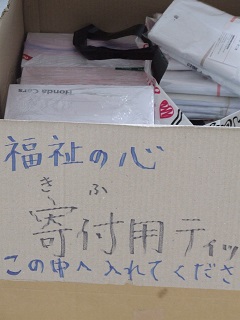 Honda Cars
福祉の心
きふ
寄付用ティッ
この中へ入れてくださ